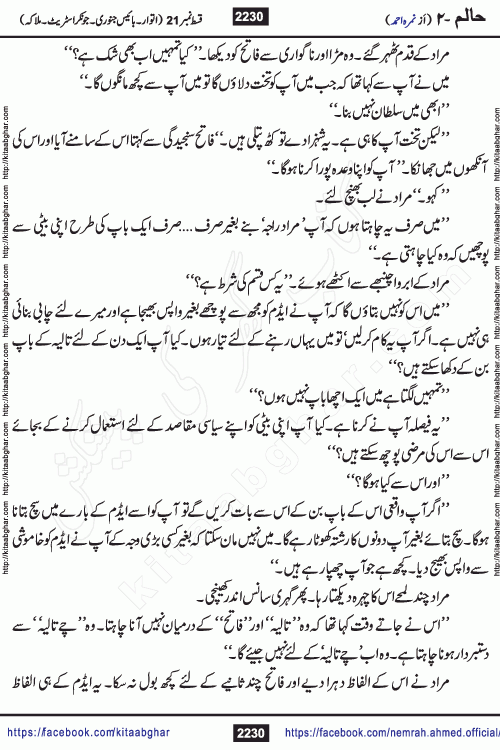 حالم -۲ (از نمرہ احمد) 2230 قسط نمبر 21 (اتوار۔ بائیس جنوری۔ جونکر اسٹریٹ۔ ملاکہ)
مراد کے قدم ٹھہر گئے۔ وہ مڑا اور ناگواری سے فاتح کو دیکھا۔ ’’کیا تمہیں اب بھی شک ہے؟‘‘
میں نے آپ سے کہا تھا کہ جب میں آپ کو تخت دلاؤں گا تو میں آپ سے کچھ مانگوں گا۔‘‘
’’ابھی میں سلطان نہیں بنا۔‘‘
’’لیکن تخت آپ کا ہی ہے۔ یہ شہزادے تو کٹھ پتلی ہیں۔‘‘ فاتح سنجیدگی سے کہتا اس کے سامنے آیا اور اس کی
آنکھوں میں جھانکا۔ ’’آپ کو اپنا وعدہ پورا کرنا ہوگا۔‘‘
’’کہو۔‘‘ مراد نے لب بھینچ لئے۔
’’میں صرف یہ چاہتا ہوں کہ آپ ’مراد راجہ‘ بنے بغیر صرف .... صرف ایک باپ کی طرح اپنی بیٹی سے
پوچھیں کہ وہ کیا چاہتی ہے۔‘‘
مراد کے ابرو اچنبھے سے اکٹھے ہوئے۔ ’’یہ کس قسم کی شرط ہے؟‘‘
’’میں اس کو نہیں بتاؤں گا کہ آپ نے ایڈم کو مجھ سے پوچھے بغیر واپس بھیجا ہے اور میرے لئے چابی بنائی
ہی نہیں ہے۔ اگر آپ یہ کام کر لیں‘ تو میں یہاں رہنے کے لئے تیار ہوں۔ کیا آپ ایک دن کے لئے تالیہ کے باپ
بن کے دکھا سکتے ہیں؟‘‘
’’تمہیں لگتا ہے میں ایک اچھا باپ نہیں ہوں؟‘‘
’’یہ فیصلہ آپ نے کرنا ہے۔ کیا آپ اپنی بیٹی کو اپنے سیاسی مقاصد کے لئے استعمال کرنے کے بجائے
اس سے اس کی مرضی پوچھ سکتے ہیں؟‘‘
’’اور اس سے کیا ہوگا؟‘‘
’’اگر آپ واقعی اس کے باپ بن کے اس سے بات کریں گے تو آپ کو اسے ایڈم کے بارے میں سچ بتانا
ہوگا۔ سچ بتائے بغیر آپ دونوں کا رشتہ کھوٹا رہے گا۔ میں نہیں مان سکتا کہ بغیر کسی بڑی وجہ کے آپ نے ایڈم کو خاموشی
سے واپس بھیج دیا۔ کچھ ہے جو آپ چھپا رہے ہیں۔‘‘
مراد چند لمحے اس کا چہرہ دیکھتا رہا۔ پھر گہری سانس اندر کھینچی۔
’’اس نے جاتے وقت کہا تھا کہ وہ ’’تالیہ‘‘ اور ’’فاتح‘‘ کے درمیان نہیں آنا چاہتا۔ وہ ’’چے تالیہ‘‘ سے
دستبردار ہونا چاہتا ہے۔ وہ اب ’چے تالیہ‘ کے لئے نہیں جیئے گا۔‘‘
مراد نے اس کے الفاظ دہرا دیے اور فاتح چند ثانیے کے لئے کچھ بول نہ سکا۔ یہ ایڈم کے ہی الفاظ
https://facebook.com/kitaabghar 2230 https://facebook.com/nemrah.ahmed.official/
http://kitaabghar.com http://kitaabghar.com http://kitaabghar.com http://kitaabghar.com
http://kitaabghar.com http://kitaabghar.com http://kitaabghar.com http://kitaabghar.com
کتاب گھر کی پیشکش
kitaabghar.com